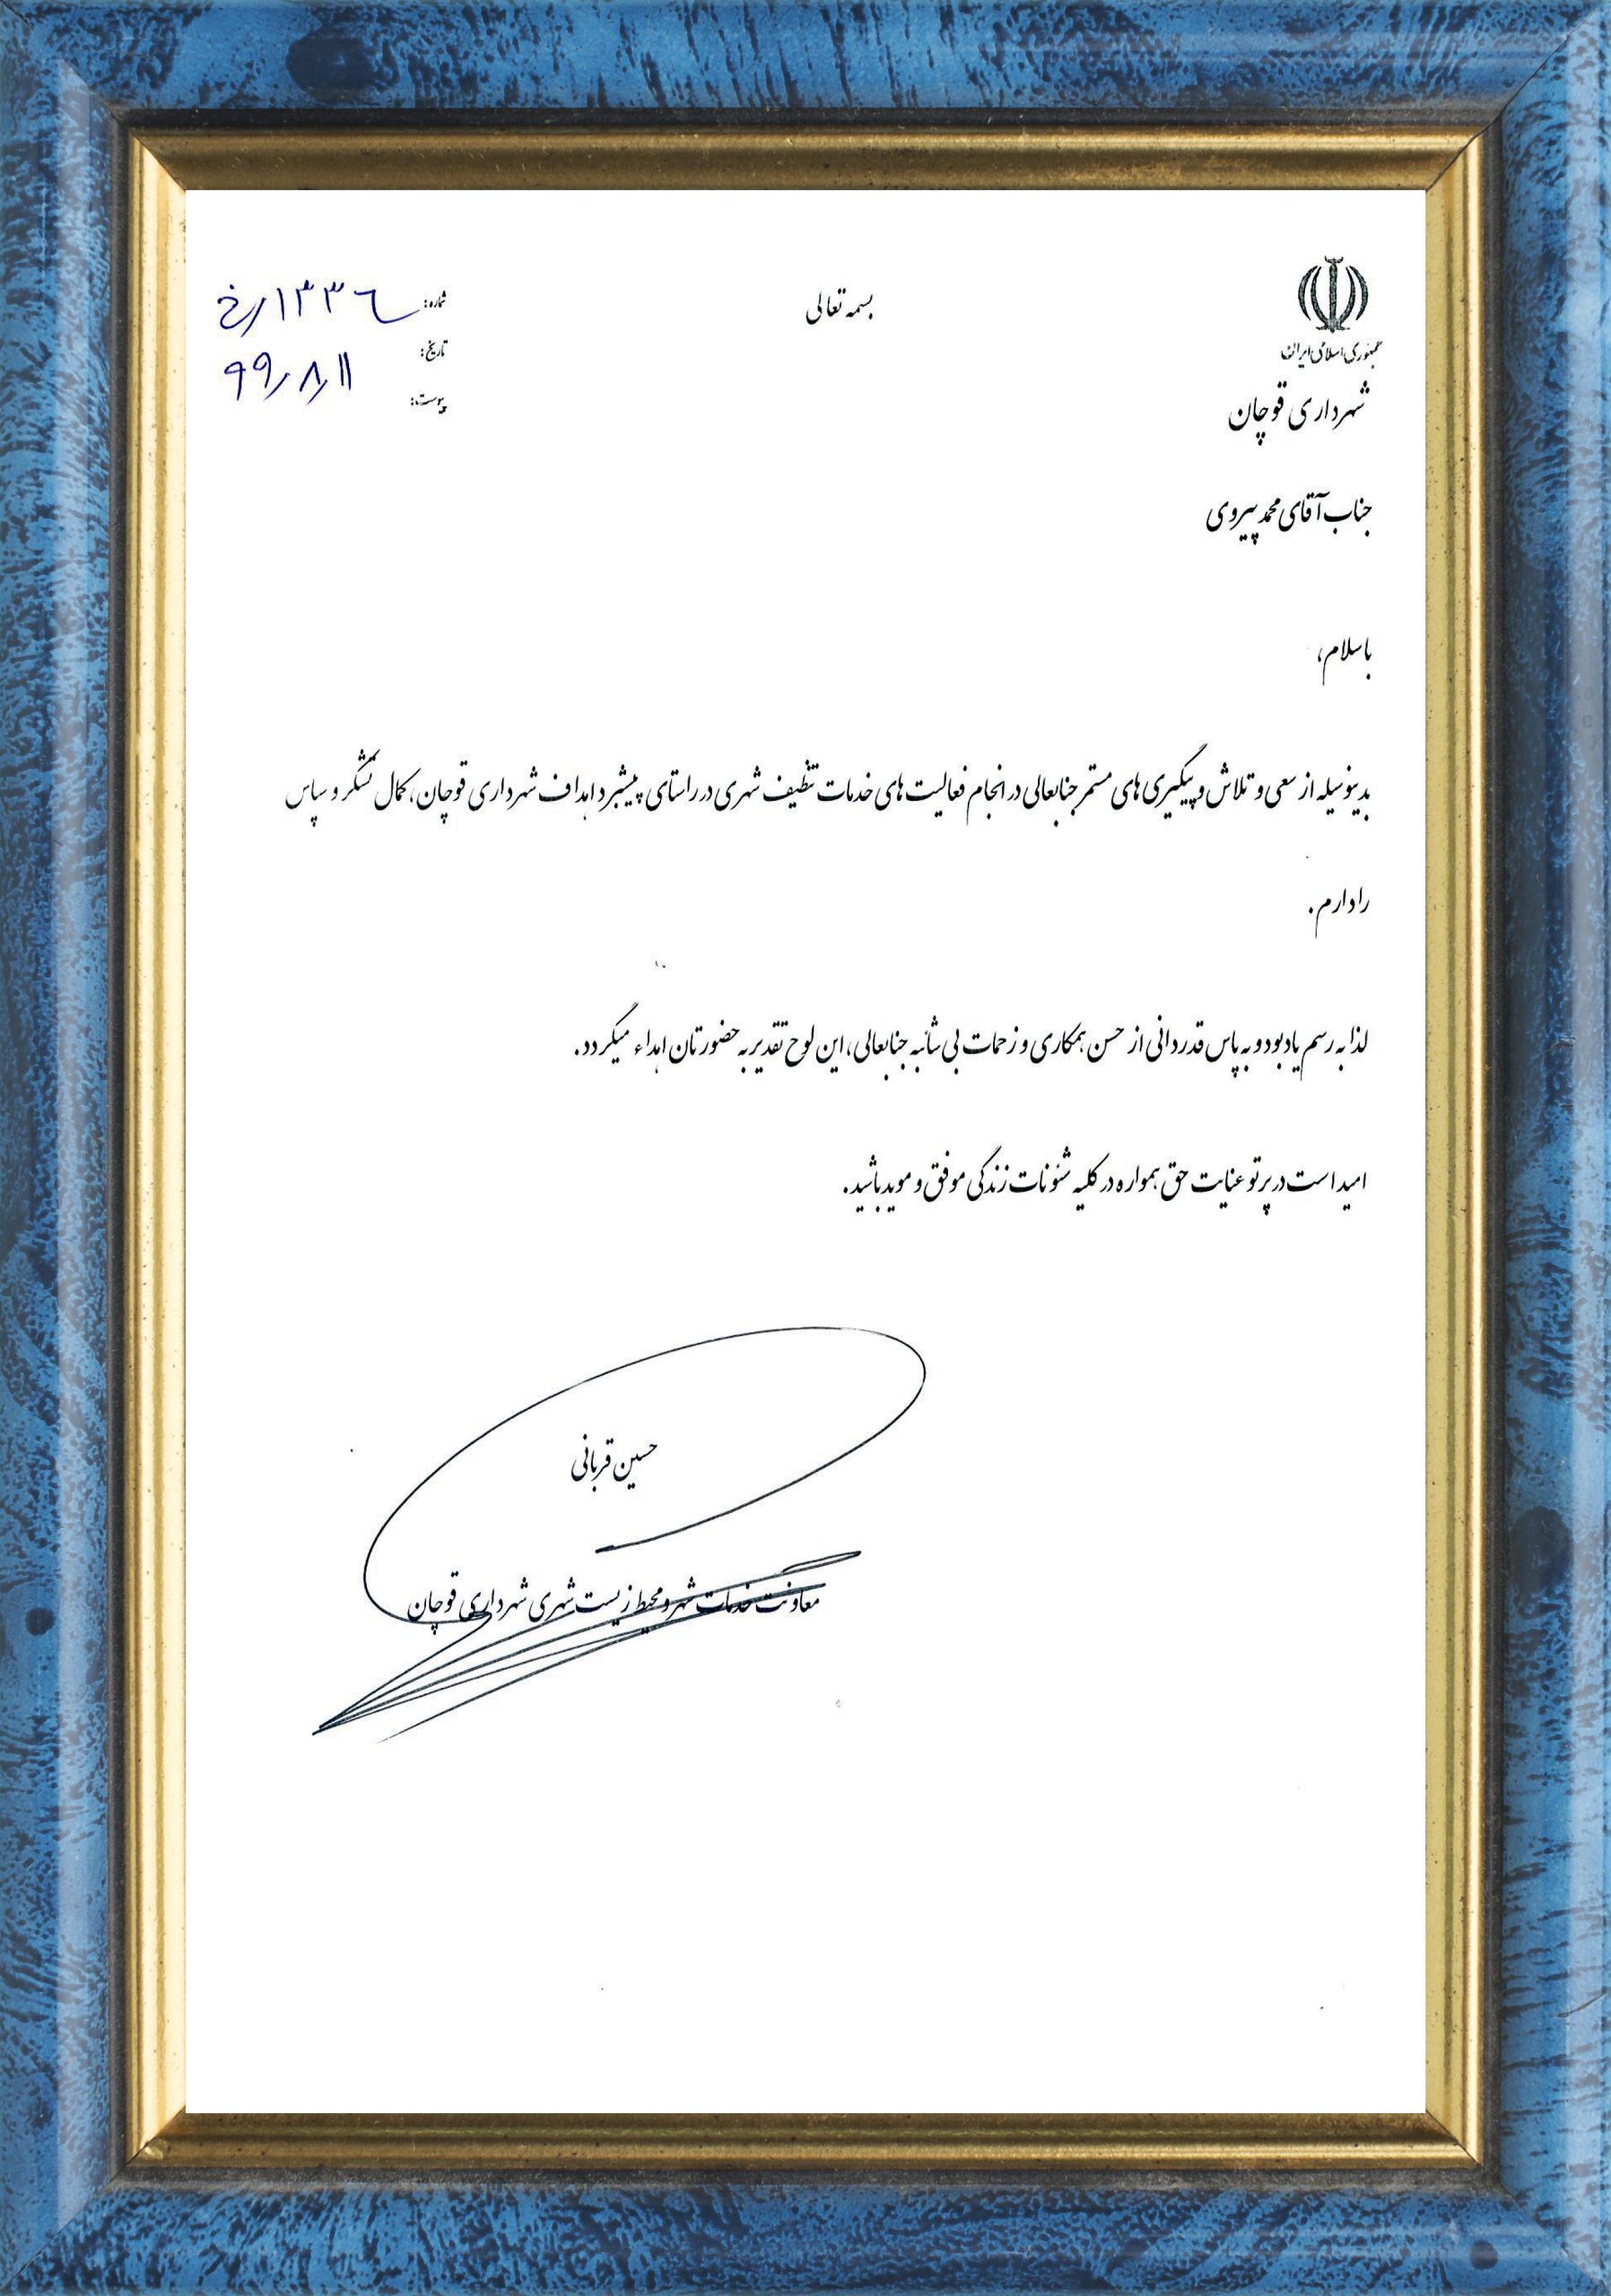 بسمه تعالی
جمهوری اسلامی ایران
شهرداری قوچان
شماره: ۱۳۳۶/خ
تاریخ: ۹۹/۸/۱۱
پیوست:
جناب آقای محمد پیروی
باسلام،
بدینوسیله از سعی و تلاش و پیگیری های مستمر جنابعالی در انجام فعالیت های خدمات تنظیف شهری در راستای پیشبرد اهداف شهرداری قوچان، کمال تشکر و سپاس
را دارم.
لذا به رسم یادبود و به پاس قدردانی از حسن همکاری و زحمات بی شائبه جنابعالی، این لوح تقدیر به حضورتان اهداء میگردد.
امید است در پرتو عنایت حق همواره در کلیه شئونات زندگی موفق و موید باشید.
حسین قربانی
معاونت خدمات شهر و محیط زیست شهری شهرداری قوچان